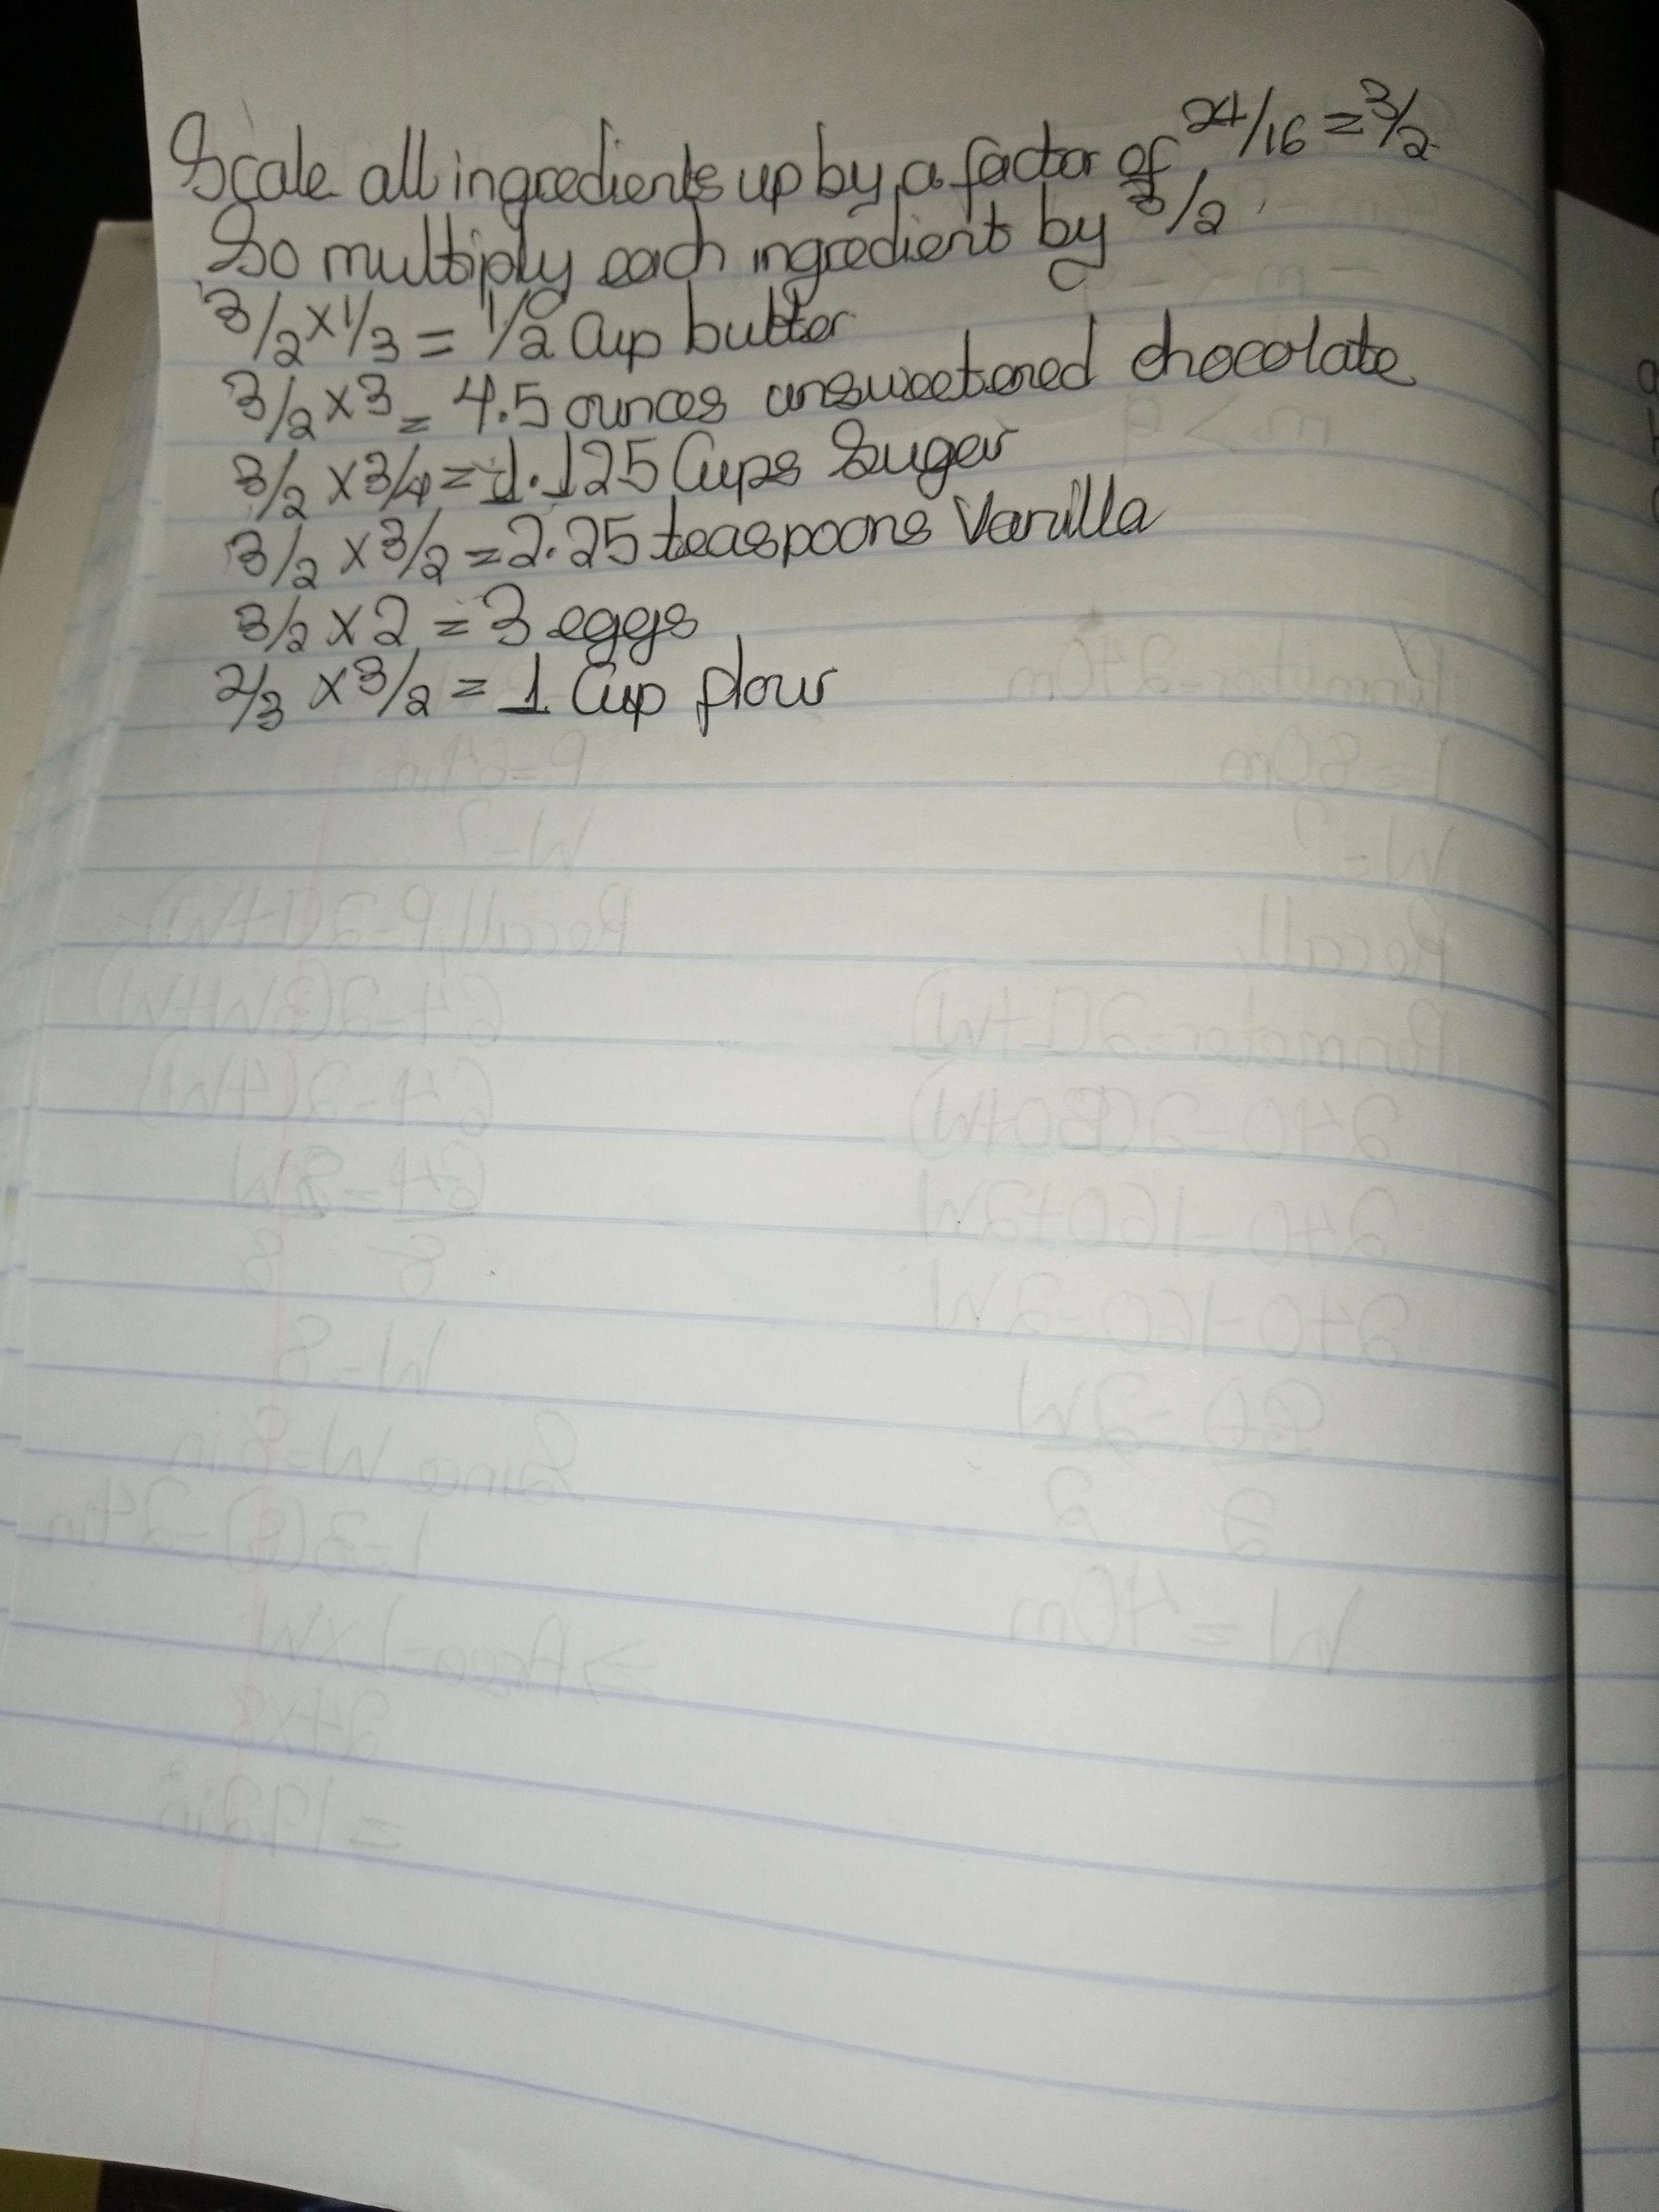 Scale all ingredients up by a factor of 24/16 = 3/2
So multiply each ingredient by 3/2
3/2 x 1/3 = 1/2 Cup butter
3/2 x 3 = 4.5 ounces unsweetened chocolate
3/2 x 3/4 = 1.125 Cups Suger
3/2 x 3/2 = 2.25 teaspoons Vanilla
3/2 x 2 = 3 eggs
2/3 x 3/2 = 1 Cup flour